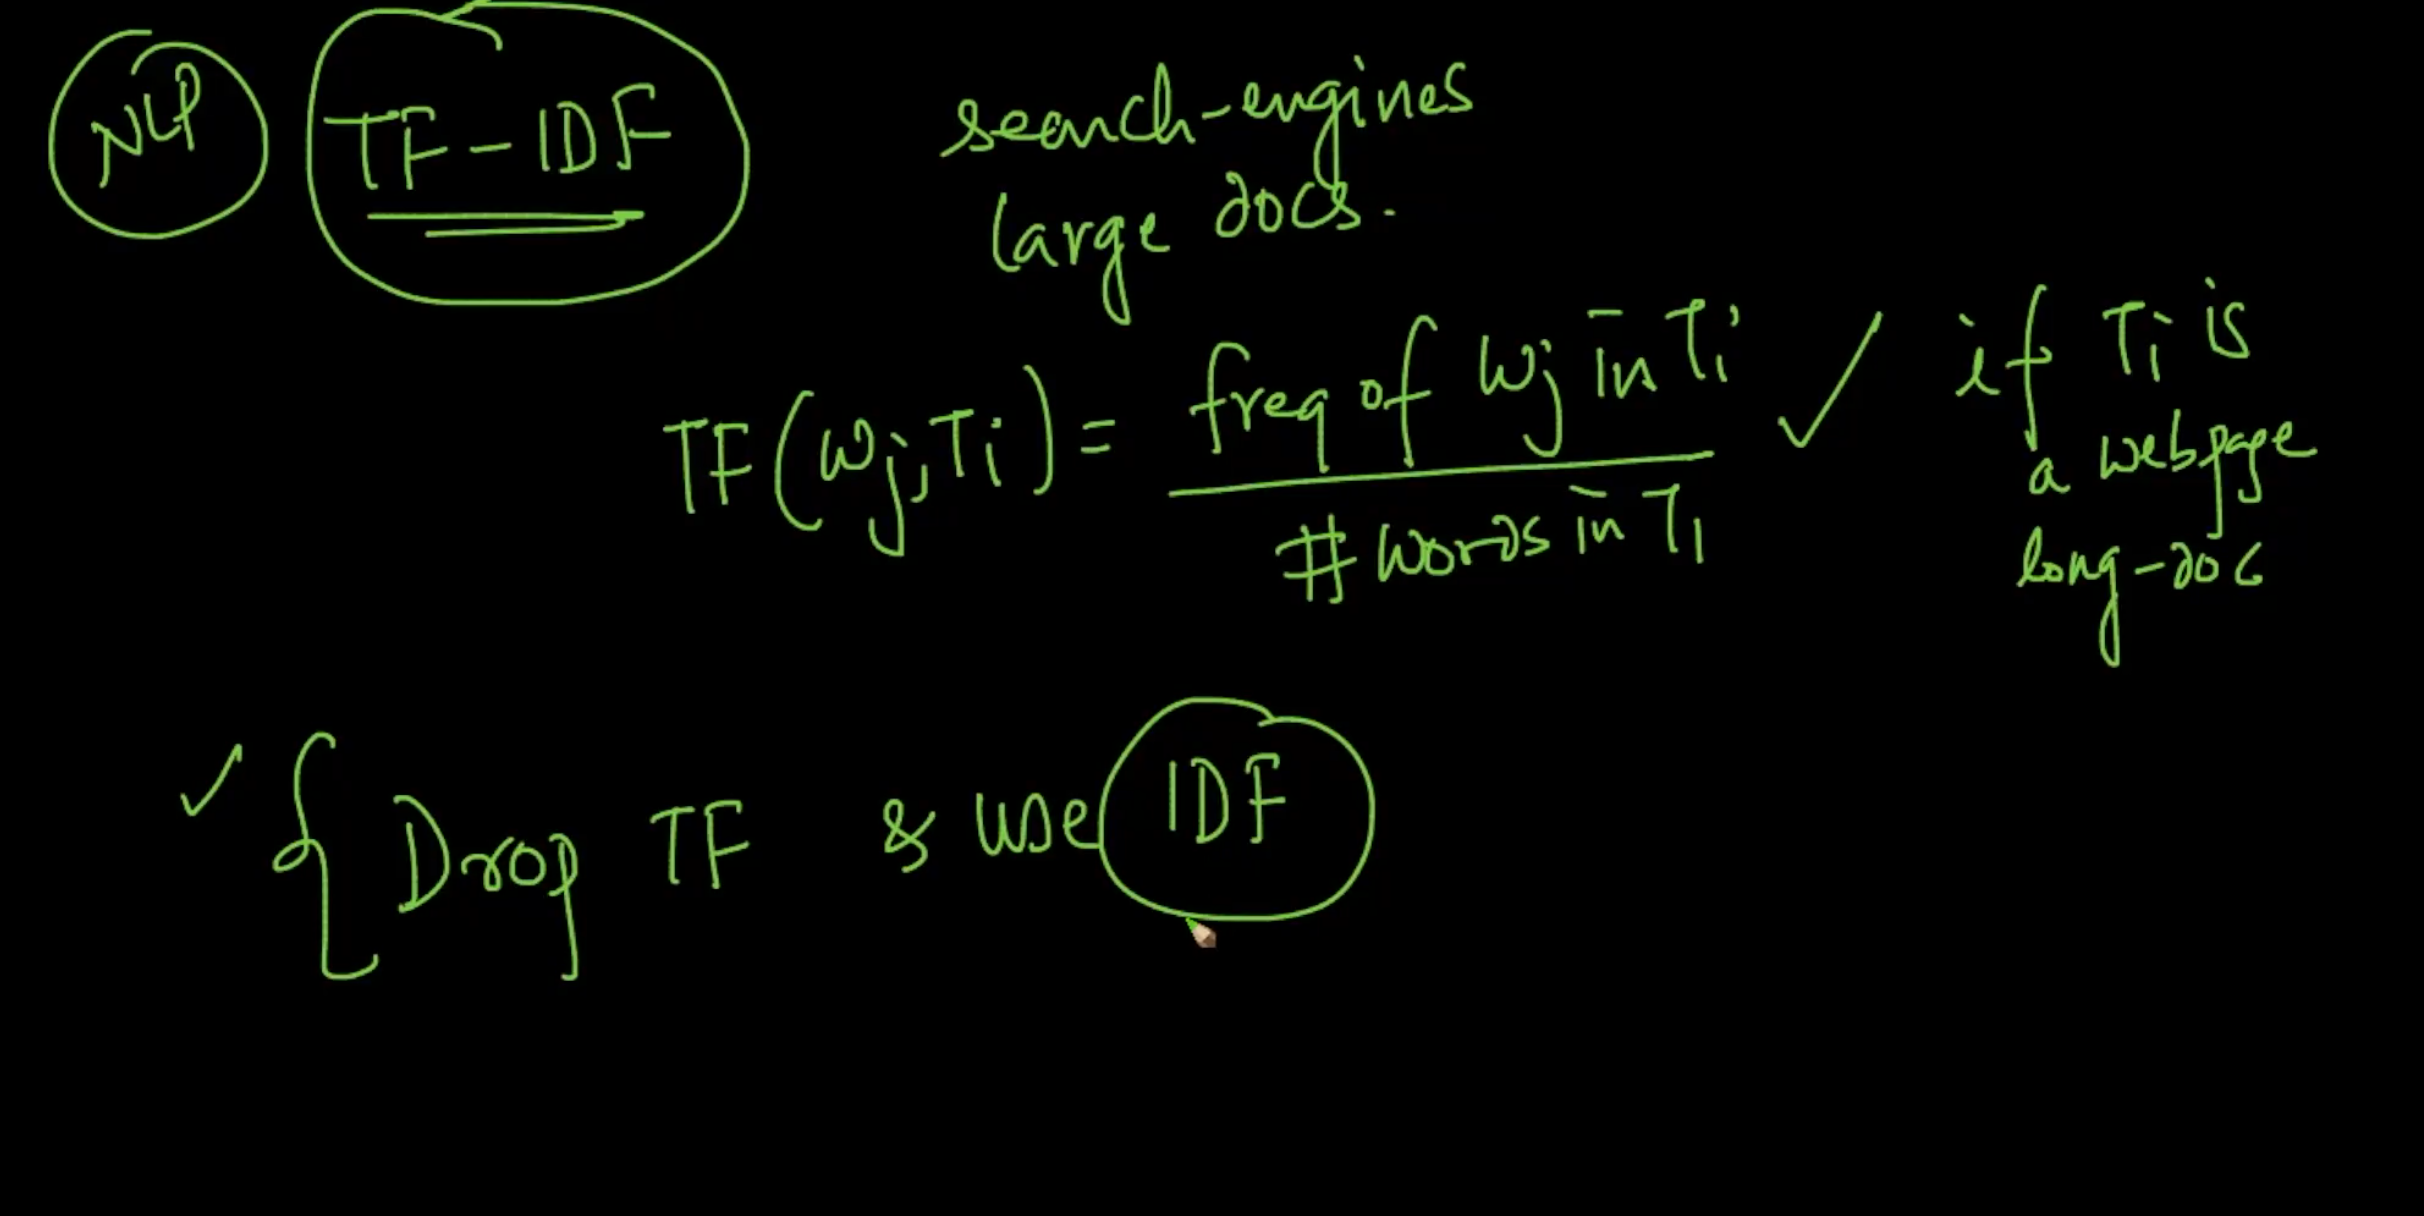 NLP
TF-IDF
search-engines
large docs.
TF(wj, Ti) = freq of wj in Ti
# words in Ti
if Ti is
a webpage
long-doc
Drop TF & use IDF